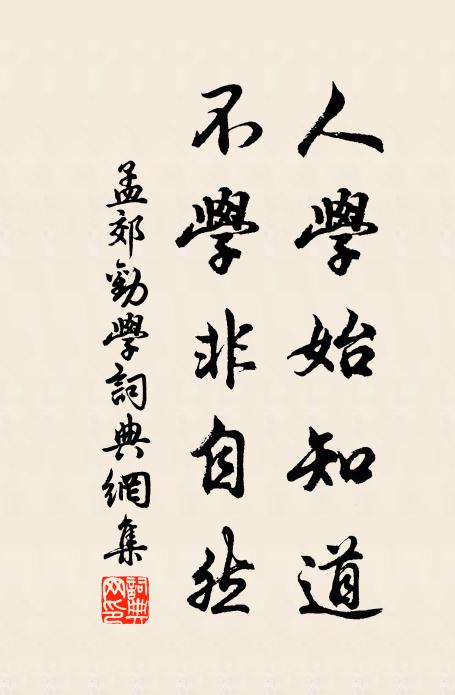 人學始知道
不學非自然
孟郊勸學詞典網集
詞典
网印